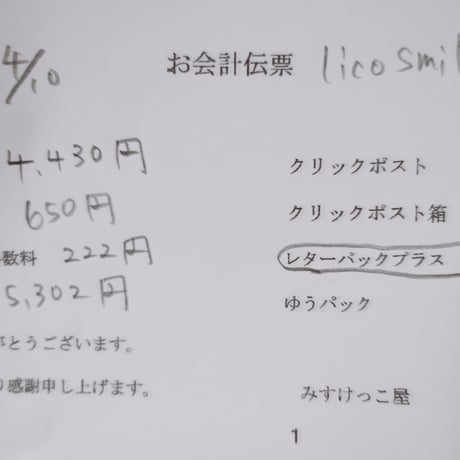 4/10 お会計伝票 lico smil
4,430円 クリックポスト
650円 クリックポスト箱
数料 222円 レターパックプラス
5,302円 ゆうパック
がとうございます。
り感謝申し上げます。 みすけっこ屋
1